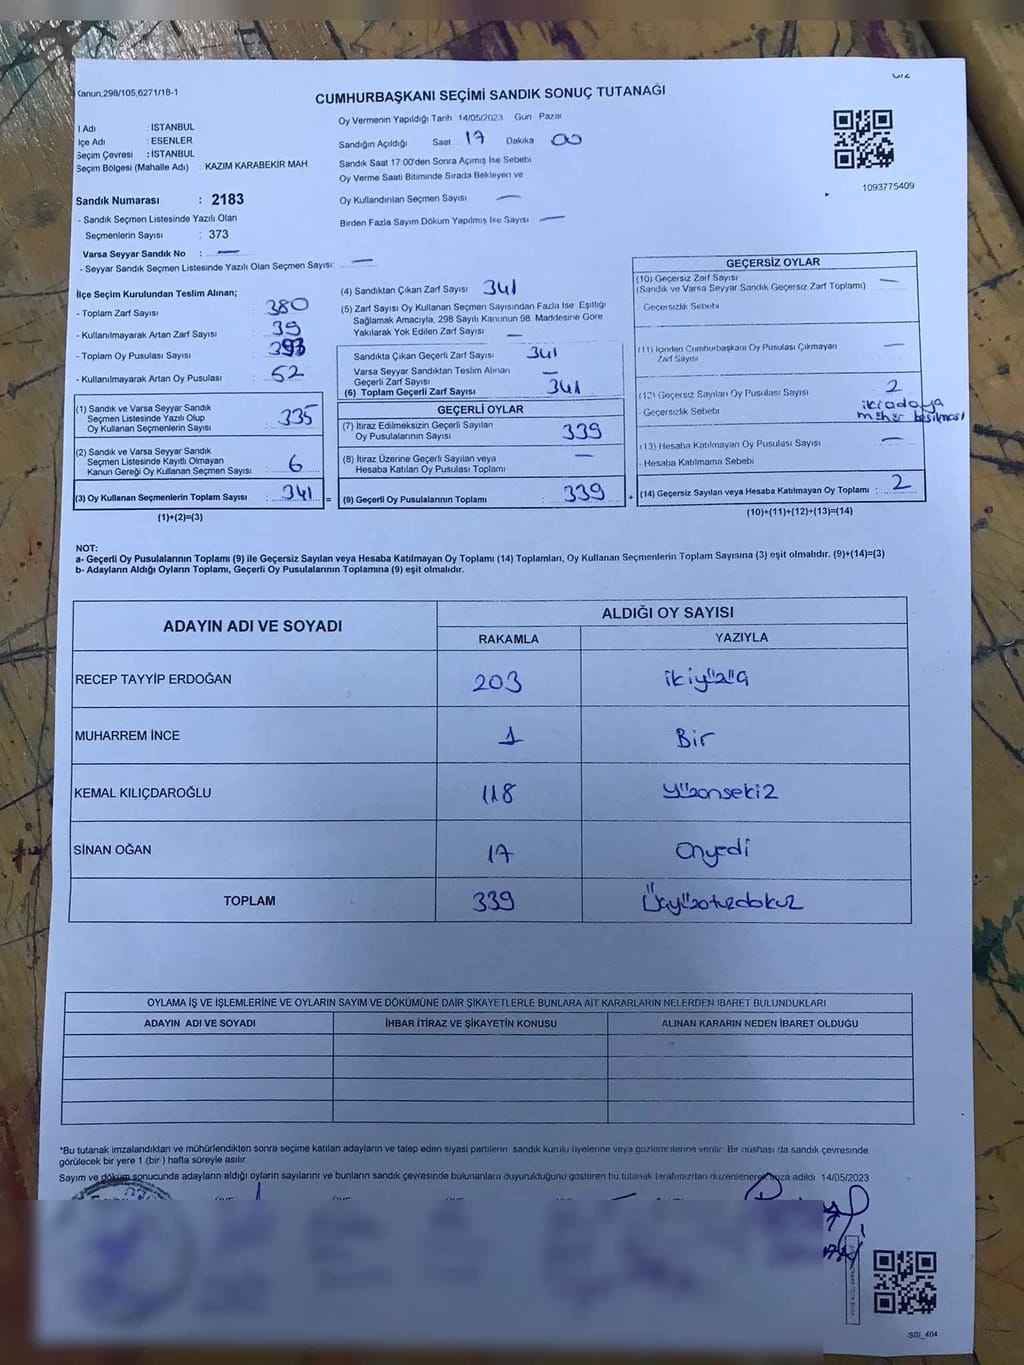 Kanun,298/105,6271/18-1
CUMHURBAŞKANI SEÇİMİ SANDIK SONUÇ TUTANAĞI
l Adı : İSTANBUL
lçe Adı : ESENLER
Seçim Çevresi : İSTANBUL
Seçim Bölgesi (Mahalle Adı) : KAZIM KARABEKİR MAH.
Sandık Numarası : 2183
- Sandık Seçmen Listesinde Yazılı Olan
Seçmenlerin Sayısı : 373
Varsa Seyyar Sandık No : —
- Seyyar Sandık Seçmen Listesinde Yazılı Olan Seçmen Sayısı: —
Oy Vermenin Yapıldığı Tarih 14/05/2023 Gün Pazar
Sandığın Açıldığı Saat 17 Dakika 00
Sandık Saat 17:00'den Sonra Açımış İse Sebebi
Oy Verme Saati Bitiminde Sırada Bekleyen ve
Oy Kullandırılan Seçmen Sayısı —
Birden Fazla Sayım Döküm Yapılmış İse Sayısı —
1093775409
İlçe Seçim Kurulundan Teslim Alınan;
- Toplam Zarf Sayısı : 380
- Kullanılmayarak Artan Zarf Sayısı : 39
- Toplam Oy Pusulası Sayısı : 393
- Kullanılmayarak Artan Oy Pusulası : 52
(1) Sandık ve Varsa Seyyar Sandık
Seçmen Listesinde Yazılı Olup
Oy Kullanan Seçmenlerin Sayısı : 335
(2) Sandık ve Varsa Seyyar Sandık
Seçmen Listesinde Kayıtlı Olmayan
Kanun Gereği Oy Kullanan Seçmen Sayısı : 6
(3) Oy Kullanan Seçmenlerin Toplam Sayısı : 341 =
(1)+(2)=(3)
(4) Sandıktan Çıkan Zarf Sayısı 341
(5) Zarf Sayısı Oy Kullanan Seçmen Sayısından Fazla İse Eşitliği
Sağlamak Amacıyla, 298 Sayılı Kanunun 98. Maddesine Göre
Yakılarak Yok Edilen Zarf Sayısı —
Sandıkta Çıkan Geçerli Zarf Sayısı 341
Varsa Seyyar Sandıktan Teslim Alınan
Geçerli Zarf Sayısı —
(6) Toplam Geçerli Zarf Sayısı 341
GEÇERLİ OYLAR
(7) İtiraz Edilmeksizin Geçerli Sayılan
Oy Pusulalarının Sayısı 339
(8) İtiraz Üzerine Geçerli Sayılan veya
Hesaba Katılan Oy Pusulası Toplamı —
(9) Geçerli Oy Pusulalarının Toplamı : 339 +
GEÇERSİZ OYLAR
(10) Geçersiz Zarf Sayısı
(Sandık ve Varsa Seyyar Sandık Geçersiz Zarf Toplamı) —
Geçersizlik Sebebi
(11) İçinden Cumhurbaşkanı Oy Pusulası Çıkmayan
Zarf Sayısı —
(12) Geçersiz Sayılan Oy Pusulası Sayısı 2
- Geçersizlik Sebebi iki adaya
mühür basılması
(13) Hesaba Katılmayan Oy Pusulası Sayısı —
- Hesaba Katılmama Sebebi
(14) Geçersiz Sayılan veya Hesaba Katılmayan Oy Toplamı : 2
(10)+(11)+(12)+(13)=(14)
NOT:
a- Geçerli Oy Pusulalarının Toplamı (9) ile Geçersiz Sayılan veya Hesaba Katılmayan Oy Toplamı (14) Toplamları, Oy Kullanan Seçmenlerin Toplam Sayısına (3) eşit olmalıdır. (9)+(14)=(3)
b- Adayların Aldığı Oyların Toplamı, Geçerli Oy Pusulalarının Toplamına (9) eşit olmalıdır.
ADAYIN ADI VE SOYADI
ALDIĞI OY SAYISI
RAKAMLA YAZIYLA
RECEP TAYYİP ERDOĞAN 203 ikiyüzüç
MUHARREM İNCE 1 Bir
KEMAL KILIÇDAROĞLU 118 yüzonsekiz
SİNAN OĞAN 17 Onyedi
TOPLAM 339 Üçyüzotuzdokuz
OYLAMA İŞ VE İŞLEMLERİNE VE OYLARIN SAYIM VE DÖKÜMÜNE DAİR ŞİKAYETLERLE BUNLARA AİT KARARLARIN NELERDEN İBARET BULUNDUKLARI
ADAYIN ADI VE SOYADI İHBAR İTİRAZ VE ŞİKAYETİN KONUSU ALINAN KARARIN NEDEN İBARET OLDUĞU
*Bu tutanak imzalandıktan ve mühürlendikten sonra seçime katılan adayların ve talep eden siyasi partilerin sandık kurulu üyelerine veya gözlemcilerine verilir. Bir nüshası da sandık çevresinde
görülecek bir yere 1 (bir ) hafta süreyle asılır.
Sayım ve döküm sonucunda adayların aldığı oyların sayılarını ve bunların sandık çevresinde bulunanlara duyurulduğunu gösteren bu tutanak tarafımızdan düzenlenerek imza edildi. 14/05/2023
SSI_404